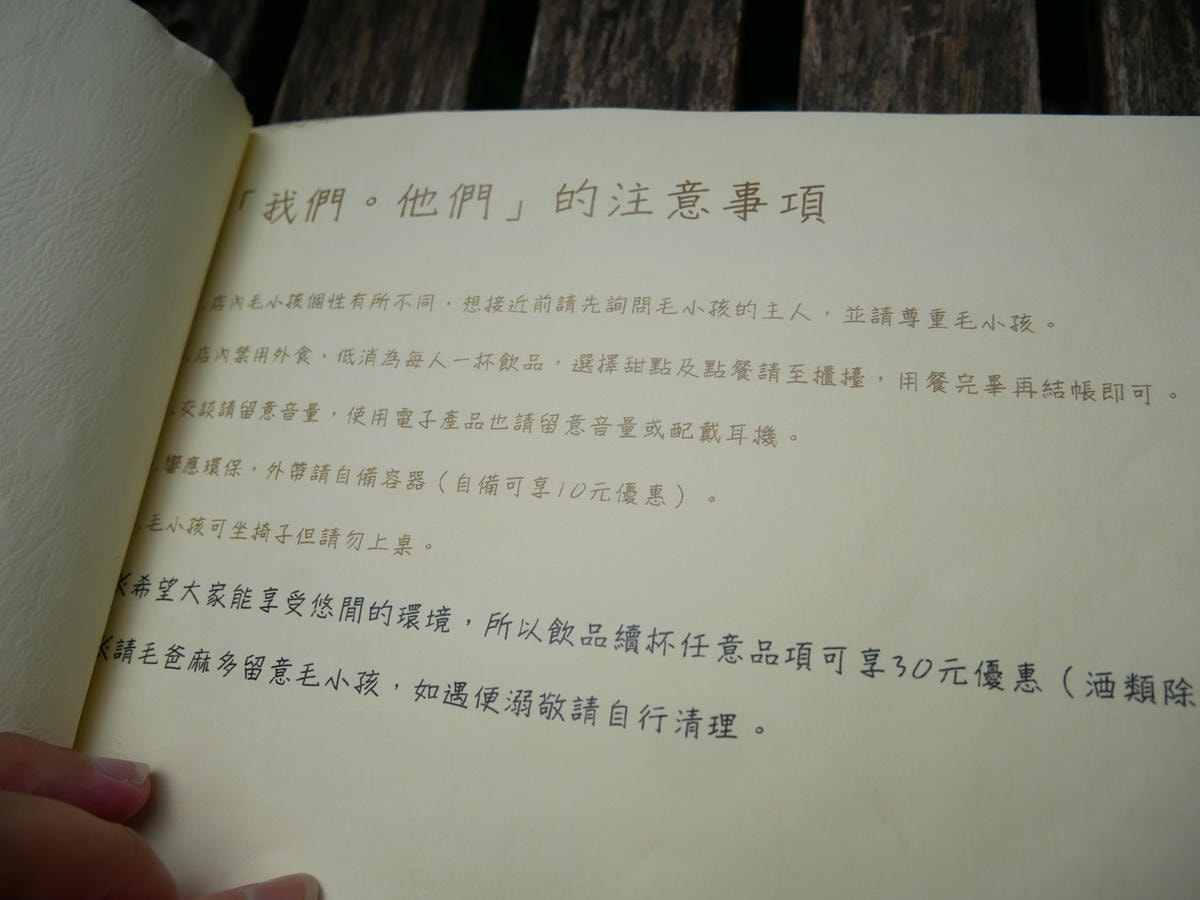 「我們。他們」的注意事項
.店內毛小孩個性有所不同，想接近前請先詢問毛小孩的主人，並請尊重毛小孩。
.店內禁用外食，低消為每人一杯飲品，選擇甜點及點餐請至櫃檯，用餐完畢再結帳即可。
.交談請留意音量，使用電子產品也請留意音量或配戴耳機。
.響應環保，外帶請自備容器（自備可享10元優惠）。
.毛小孩可坐椅子但請勿上桌。
※希望大家能享受悠閒的環境，所以飲品續杯任意品項可享30元優惠（酒類除
※請毛爸麻多留意毛小孩，如遇便溺敬請自行清理。